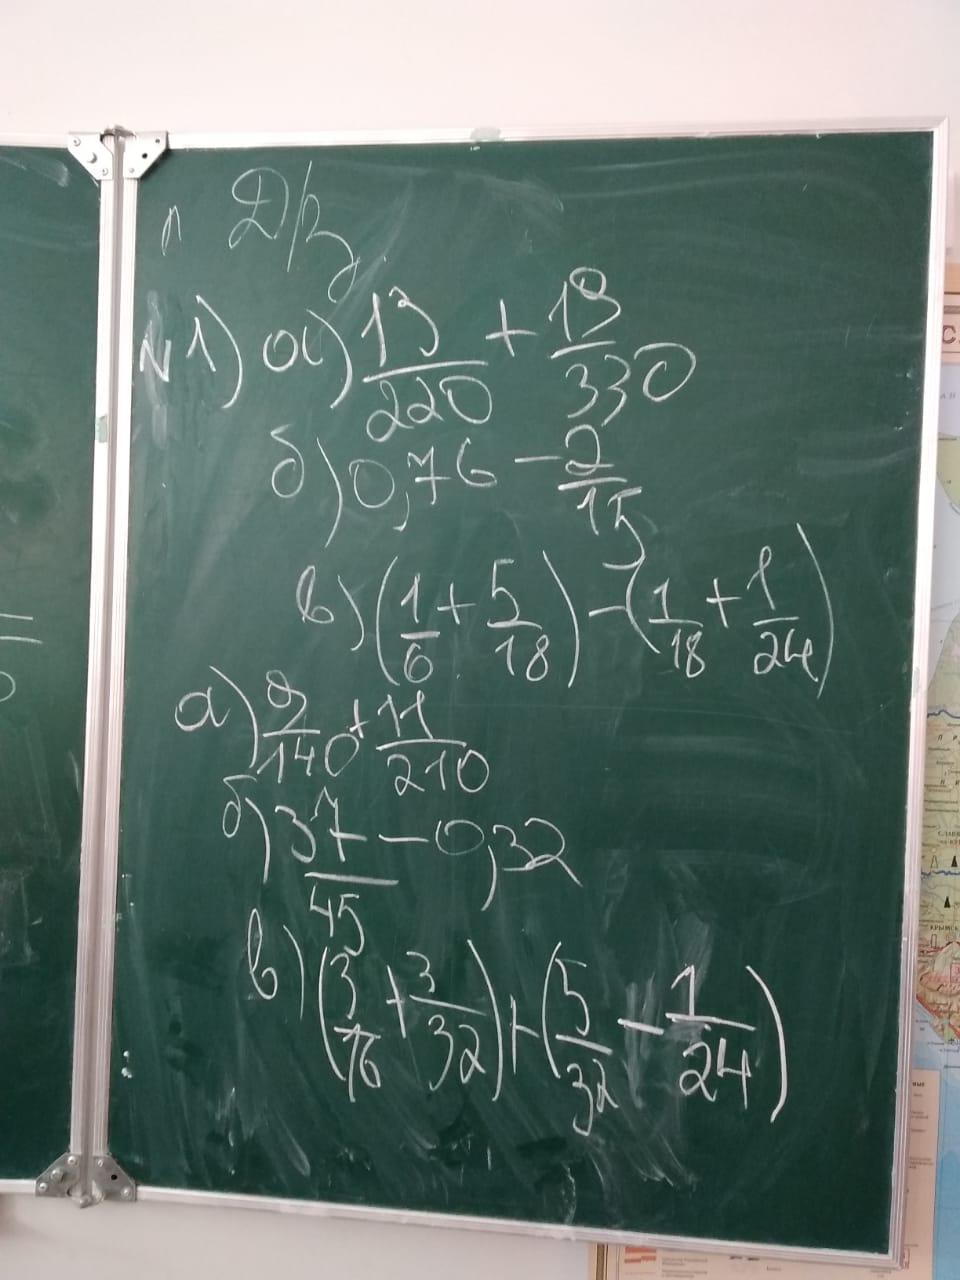 Д/з
№1) а) 13/220 + 19/330
б) 0,76 - 2/15
в) (1/6 + 5/18) - (1/18 + 1/24)
а) 9/140 + 11/210
б) 37/45 - 0,32
в) (3/16 + 3/32) + (5/32 - 1/24)